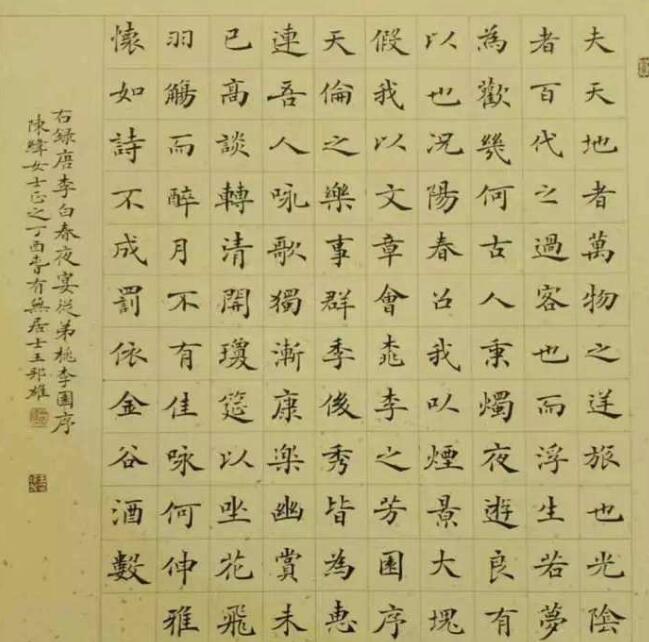 夫天地者萬物之逆旅也光陰
者百代之過客也而浮生若夢
為歡幾何古人秉燭夜遊良有
以也況陽春召我以煙景大塊
假我以文章會桃李之芳園序
天倫之樂事群季俊秀皆為惠
連吾人詠歌獨漸康樂幽賞未
已高談轉清開瓊筵以坐花飛
羽觴而醉月不有佳咏何伸雅
懷如詩不成罰依金谷酒數
右録唐李白春夜宴從弟桃李園序
陳女士正之丁酉春有無居士王邦雄